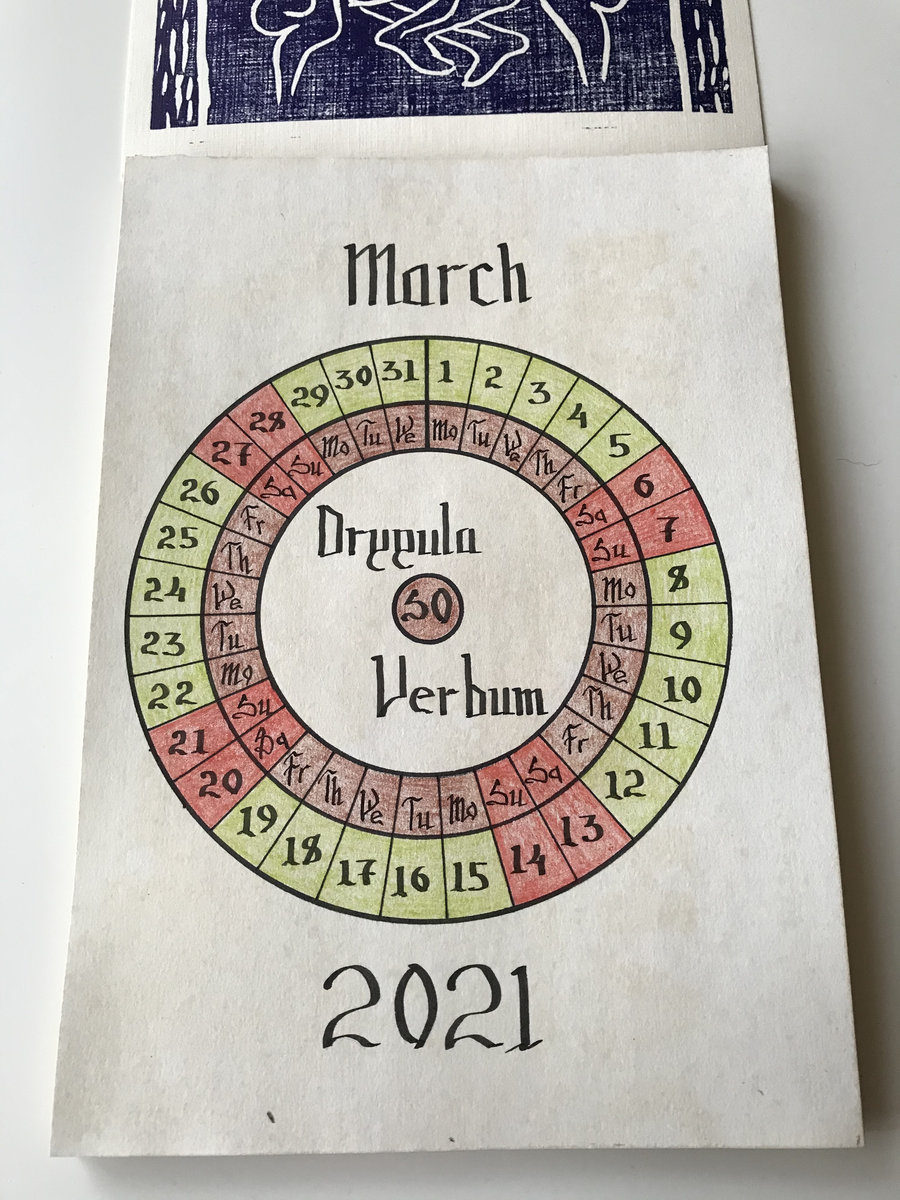 March
1 2 3 4 5 6 7 8 9 10 11 12 13 14 15 16 17 18 19 20 21 22 23 24 25 26 27 28 29 30 31
Mo Tu We Th Fr Sa Su Mo Tu We Th Fr Sa Su Mo Tu We Th Fr Sa Su Mo Tu We Th Fr Sa Su Mo Tu We
Dryyula
SO
Verbum
2021